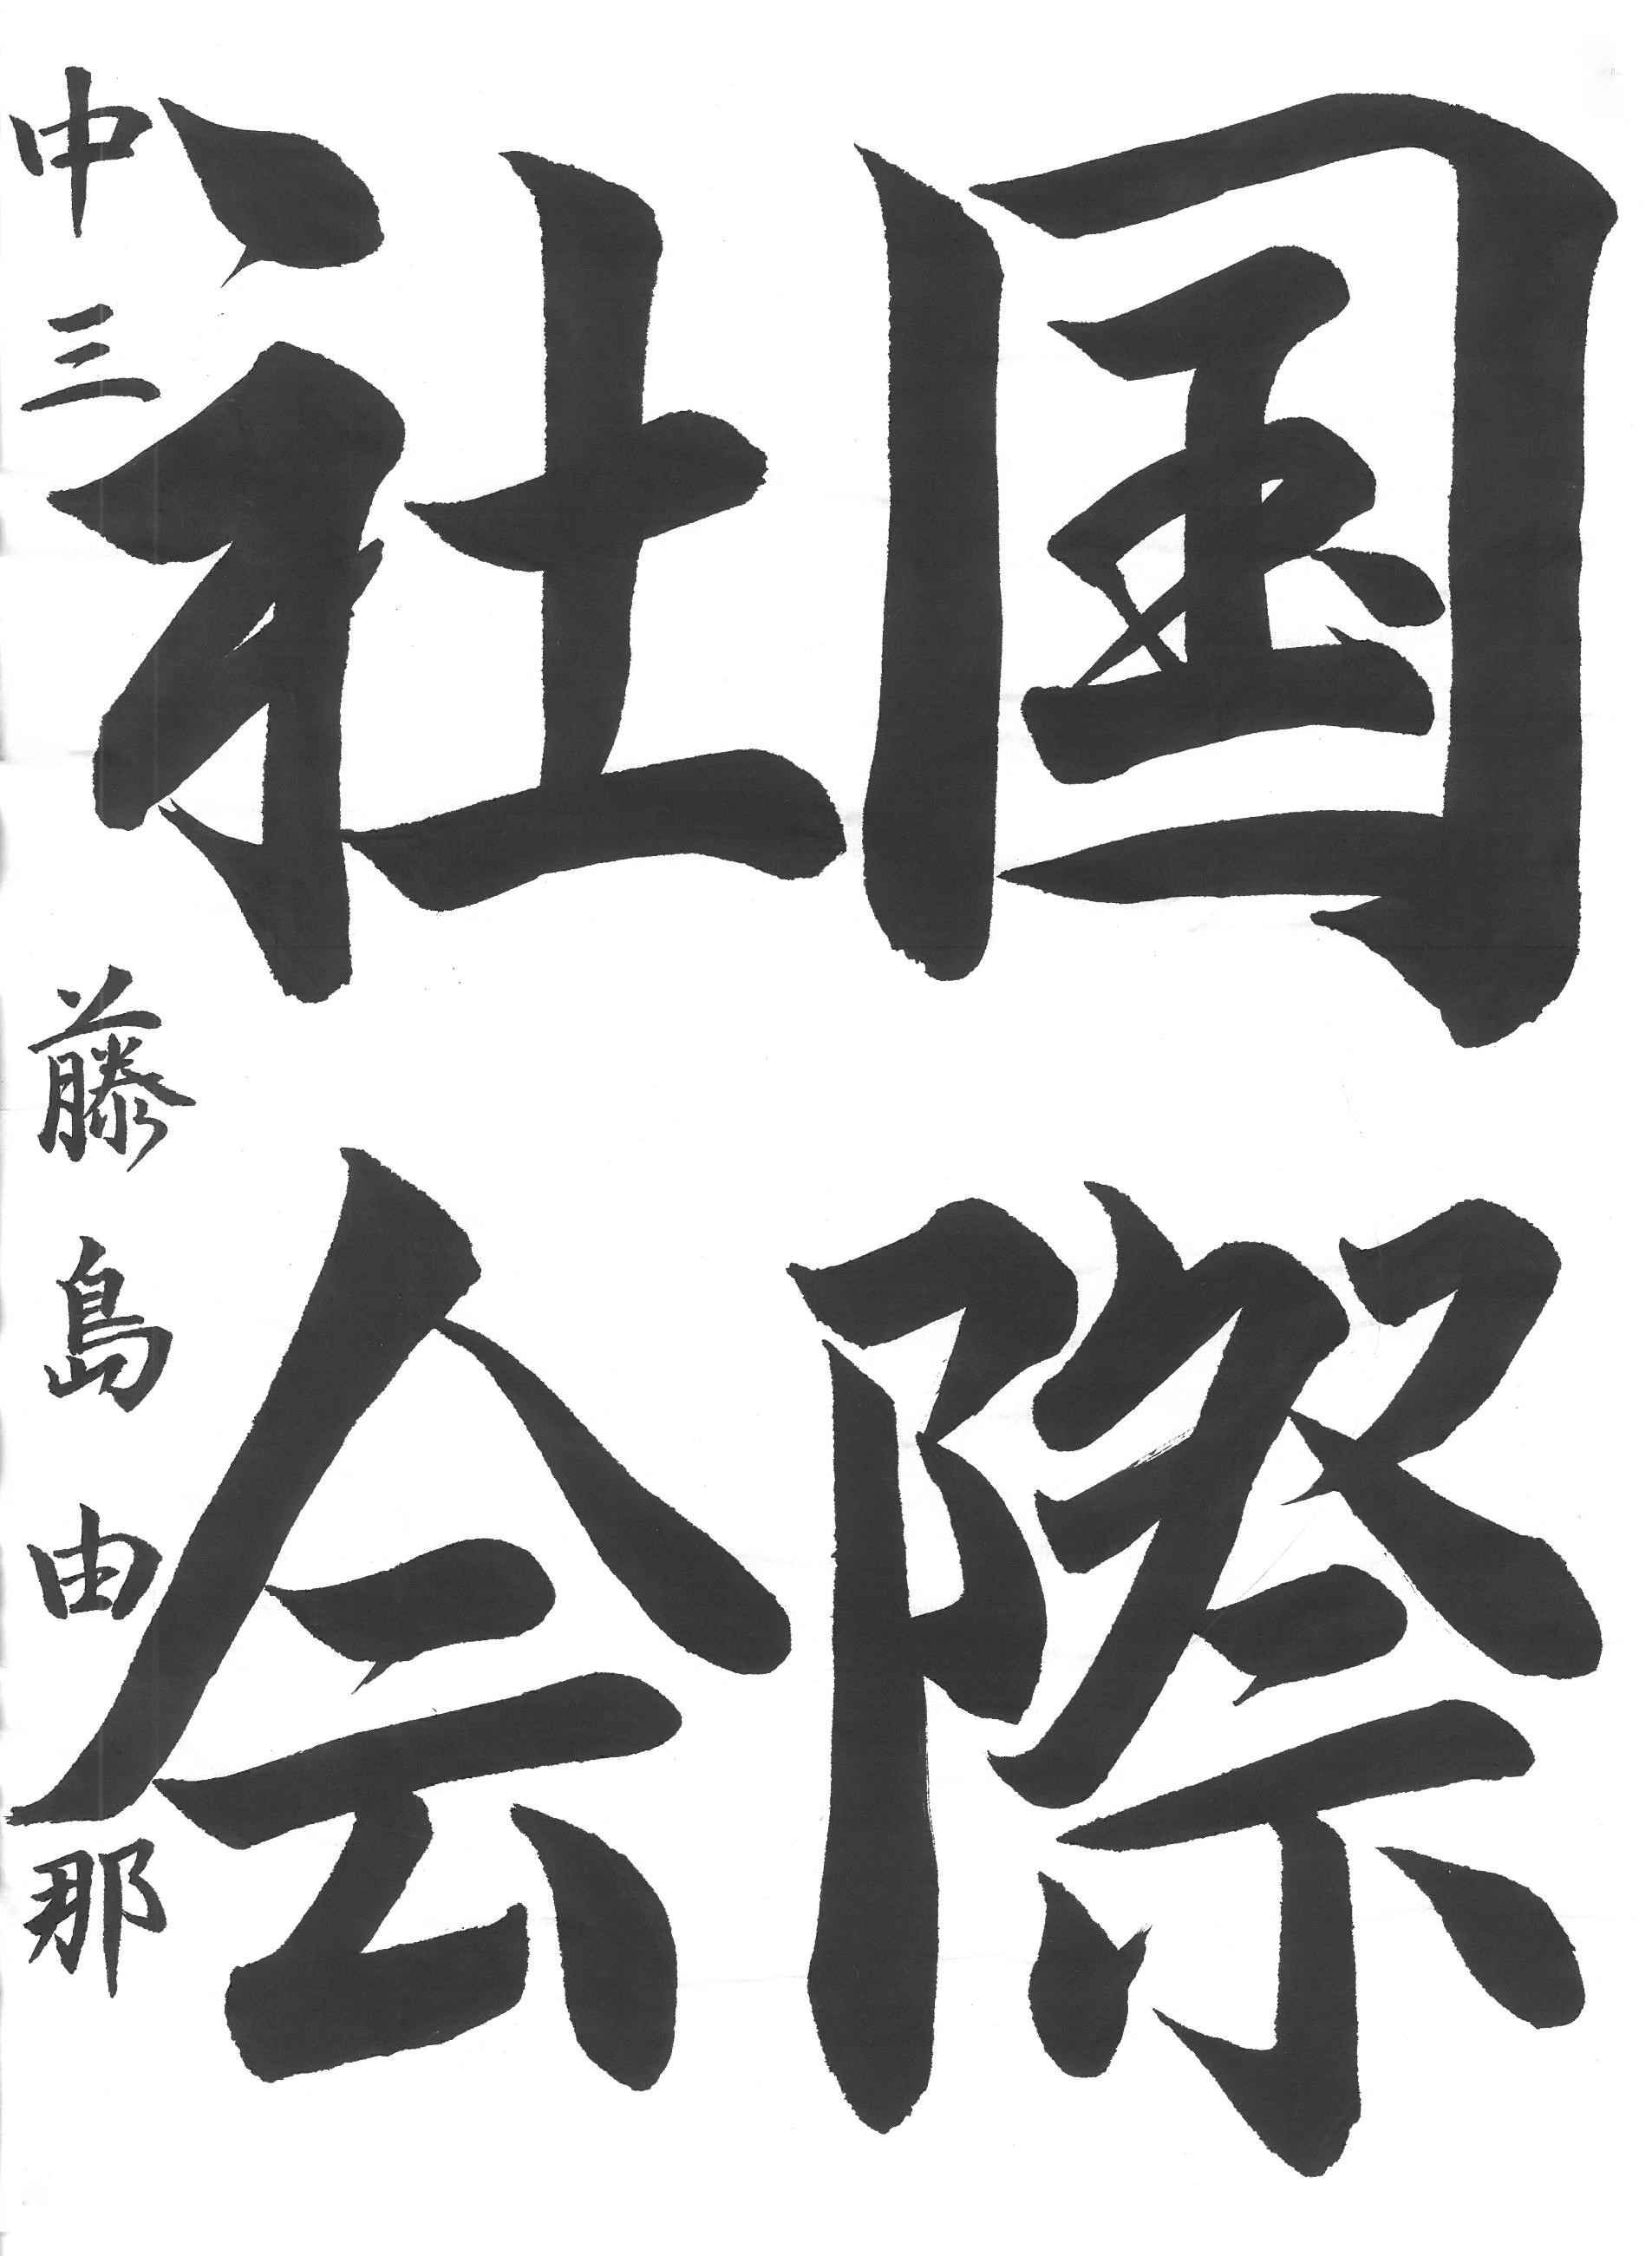 国際
社会
中三 藤島由那